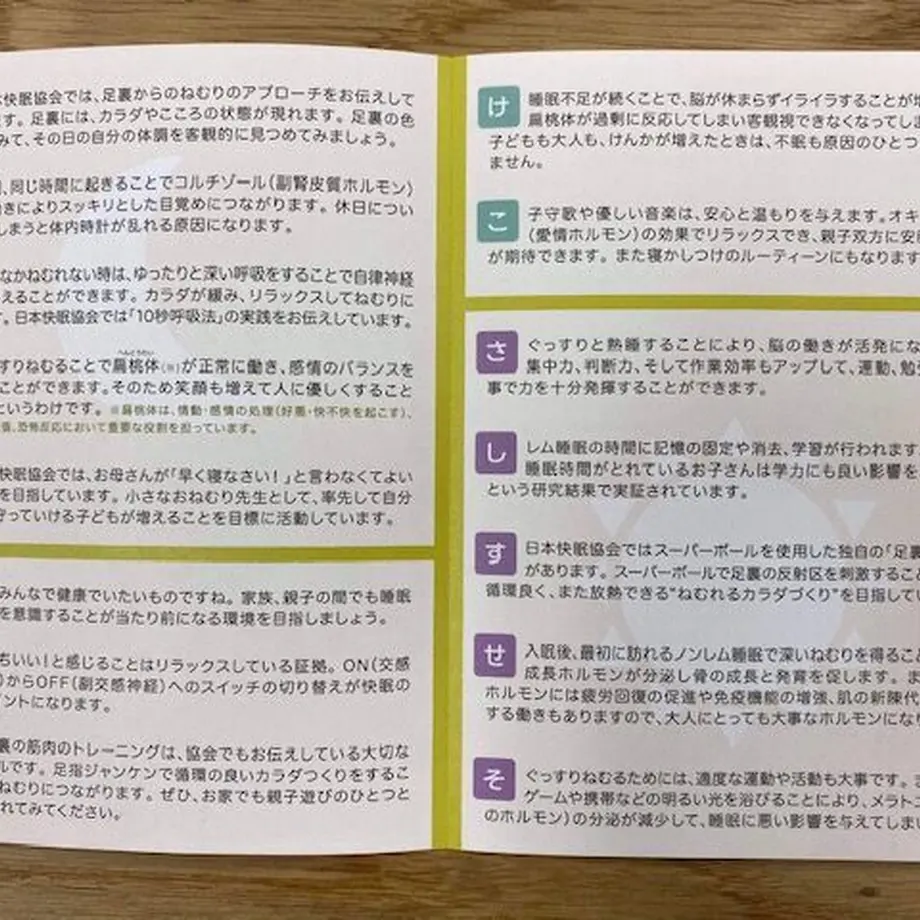 快眠協会では、足裏からのねむりのアプローチをお伝えして
ます。足裏には、カラダやこころの状態が現れます。足裏の色
みて、その日の自分の体調を客観的に見つめてみましょう。
、同じ時間に起きることでコルチゾール(副腎皮質ホルモン)
きによりスッキリとした目覚めにつながります。休日につい
しまうと体内時計が乱れる原因になります。
なかねむれない時は、ゆったりと深い呼吸をすることで自律神経
えることができます。カラダが緩み、リラックスしてねむりに
す。日本快眠協会では「10秒呼吸法」の実践をお伝えしています。
すりねむることで扁桃体(※)が正常に働き、感情のバランスを
ことができます。そのため笑顔も増えて人に優しくすること
というわけです。※扁桃体は、情動・感情の処理(好悪・快不快を起こす)、
恐怖反応において重要な役割を担っています。
快眠協会では、お母さんが「早く寝なさい!」と言わなくてよい
を目指しています。小さなおねむり先生として、率先して自分
守っていける子どもが増えることを目標に活動しています。
みんなで健康でいたいものですね。家族、親子の間でも睡眠
を意識することが当たり前になる環境を目指しましょう。
ちいい!と感じることはリラックスしている証拠。ON(交感
)からOFF(副交感神経)へのスイッチの切り替えが快眠の
イントになります。
裏の筋肉のトレーニングは、協会でもお伝えしている大切な
ルです。足指ジャンケンで循環の良いカラダつくりをするこ
ねむりにつながります。ぜひ、お家でも親子遊びのひとつと
れてみてください。
け 睡眠不足が続くことで、脳が休まらずイライラすることが
扁桃体が過剰に反応してしまい客観視できなくなってしま
子どもも大人も、けんかが増えたときは、不眠も原因のひとつ
ません。
こ 子守歌や優しい音楽は、安心と温もりを与えます。オキ
(愛情ホルモン)の効果でリラックスでき、親子双方に安
が期待できます。また寝かしつけのルーティーンにもなります
さ ぐっすりと熟睡することにより、脳の働きが活発にな
集中力、判断力、そして作業効率もアップして、運動、勉
事で力を十分発揮することができます。
し レム睡眠の時間に記憶の固定や消去、学習が行われます
睡眠時間がとれているお子さんは学力にも良い影響を
という研究結果で実証されています。
す 日本快眠協会ではスーパーボールを使用した独自の「足裏
があります。スーパーボールで足裏の反射区を刺激すること
循環良く、また放熱できる"ねむれるカラダづくり"を目指してい
せ 入眠後、最初に訪れるノンレム睡眠で深いねむりを得ること
成長ホルモンが分泌し骨の成長と発育を促します。ま
ホルモンには疲労回復の促進や免疫機能の増強、肌の新陳代
する働きもありますので、大人にとっても大事なホルモンにな
そ ぐっすりねむるためには、適度な運動や活動も大事です。
ゲームや携帯などの明るい光を浴びることにより、メラト
のホルモン)の分泌が減少して、睡眠に悪い影響を与えてしま